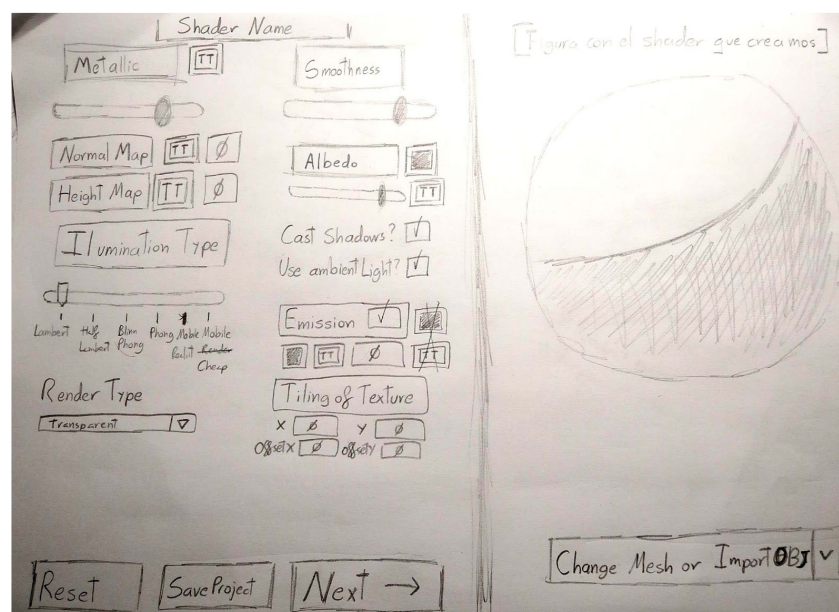 Shader Name
Metallic TT
Smoothness
Normal Map TT Ø
Height Map TT Ø
Ilumination Type
Lambert Half Lambert Blinn Phong Phong Mobile Mobile Cheap
Render Type
Transparent
Albedo
TT
Cast Shadows? ✓
Use ambient Light? ✓
Emission ✓
TT Ø TT
Tiling of Texture
X Ø Y Ø
OffsetX Ø offsetY Ø
Reset Save Project Next →
[Figura con el shader que creamos]
Change Mesh or Import OBJ